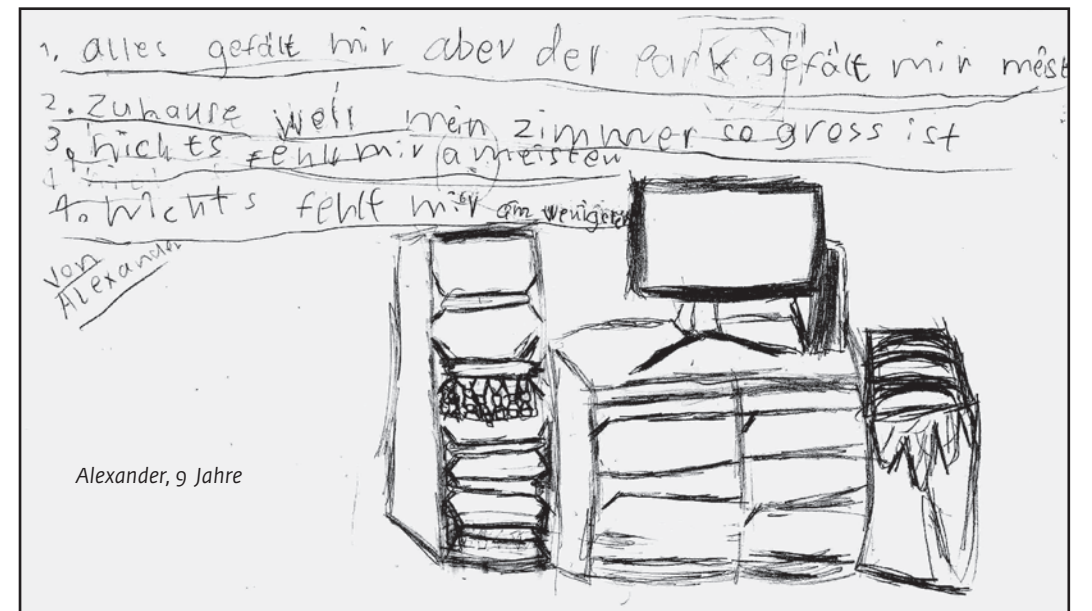 1. alles gefält mir aber der Park gefält mir meist
2. Zuhause weil mein zimmer so gross ist
3. nichts fehlt mir ameisten
4. nichts fehlt mir am
von
Alexander
Alexander, 9 Jahre